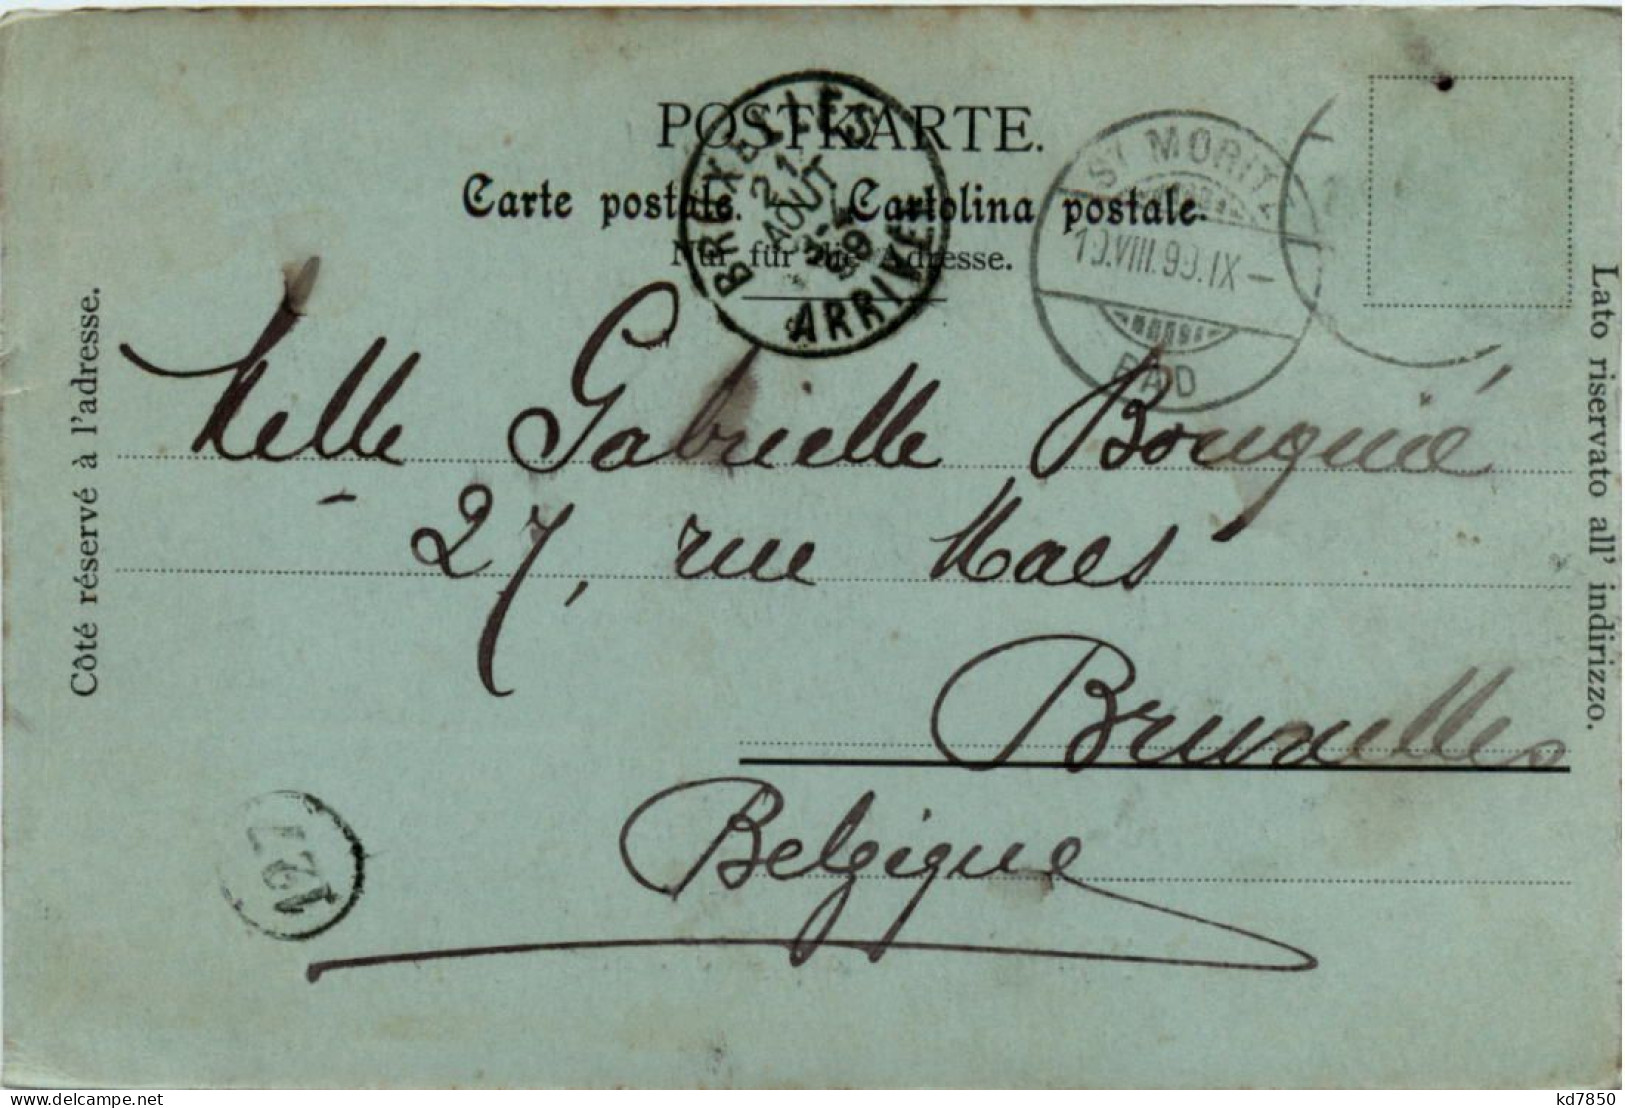 POSTKARTE.
Carte postale. Cartolina postale.
Nur für die Adresse.
BRUXELLES
21
AOUT
99
ARRIVEE
ST MORITZ
19.VIII.99.IX-
BAD
Côté réservé à l'adresse.
Lato riservato all' indirizzo.
Melle Gabrielle Bouquié
27, rue Maes
Bruxelles
Belgique
127
kd7850